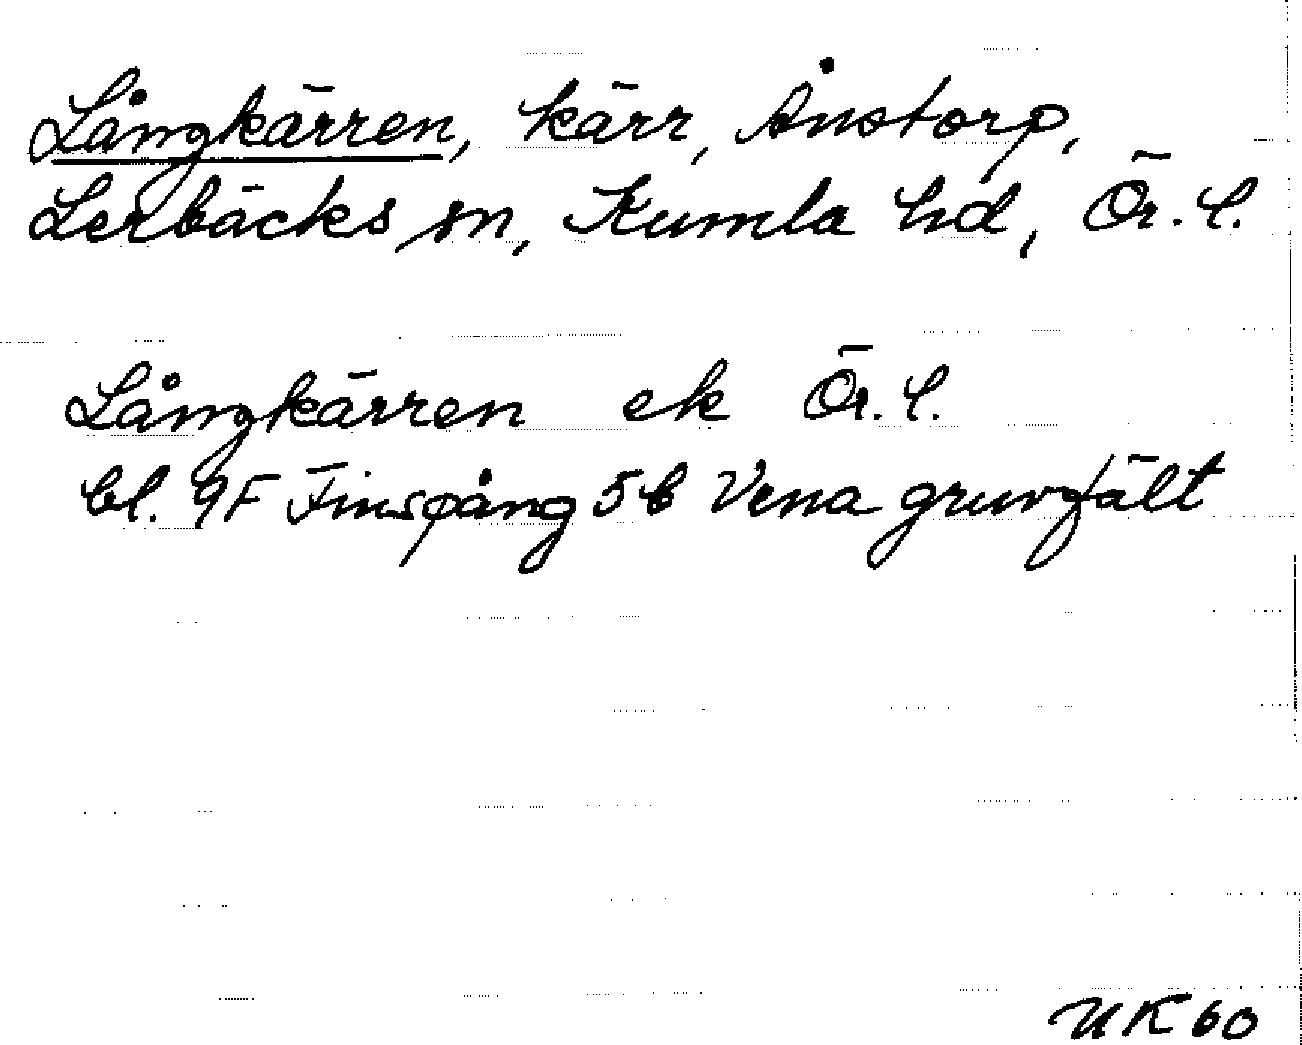 Långkärren, kärr, Ånstorp,
Lerbäcks sn, Kumla hd, Ör. l.
Långkärren ek Ör. l.
bl. 9F Finspång 5b Vena gruvfält
UK60